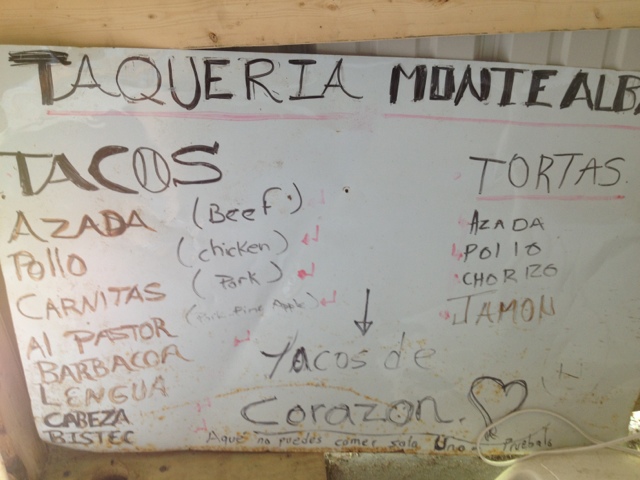 TAQUERIA MONTE ALBA
TACOS
AZADA (Beef.)
Pollo (chicken)
CARNITAS (Pork)
Al PASTOR (Pork-Pine Apple)
BARBACOA
LENGUA
CABEZA
BISTEC
TORTAS
AZADA
POllO
CHORIZO
JAMON
Tacos de
Corazon.
Aqui no puedes comer solo Uno. Pruebalo